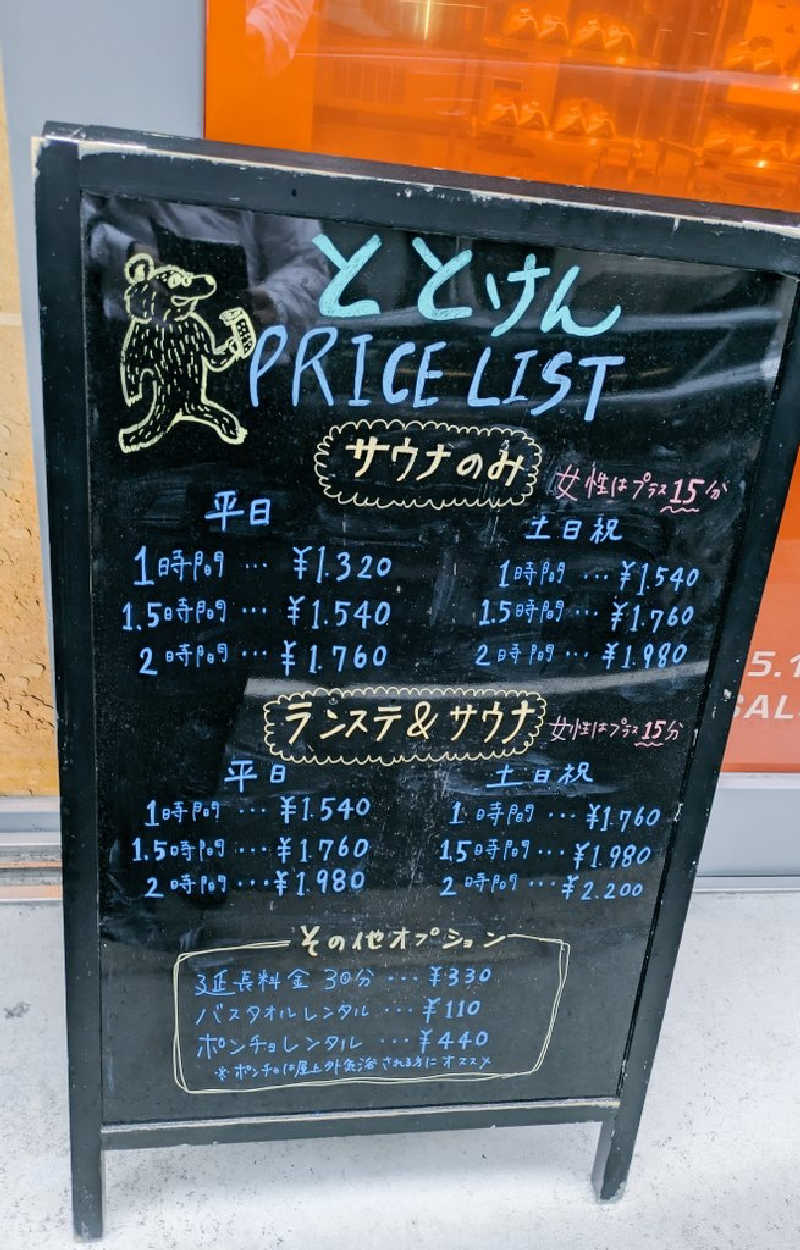 ととけん
PRICE LIST
サウナのみ
女性はプラス15分
平日
1時間 … ¥1.320
1.5時間 … ¥1.540
2時間 … ¥1.760
土日祝
1時間 … ¥1.540
1.5時間 … ¥1.760
2時間 … ¥1.980
ランステ&サウナ
女性はプラス15分
平日
1時間 … ¥1.540
1.5時間 … ¥1.760
2時間 … ¥1.980
土日祝
1時間 … ¥1.760
1.5時間 … ¥1.980
2時間 … ¥2.200
その他オプション
延長料金 30分 … ¥330
バスタオルレンタル … ¥110
ポンチョレンタル … ¥440
※ポンチョは屋上外気浴される方にオススメ
5.1